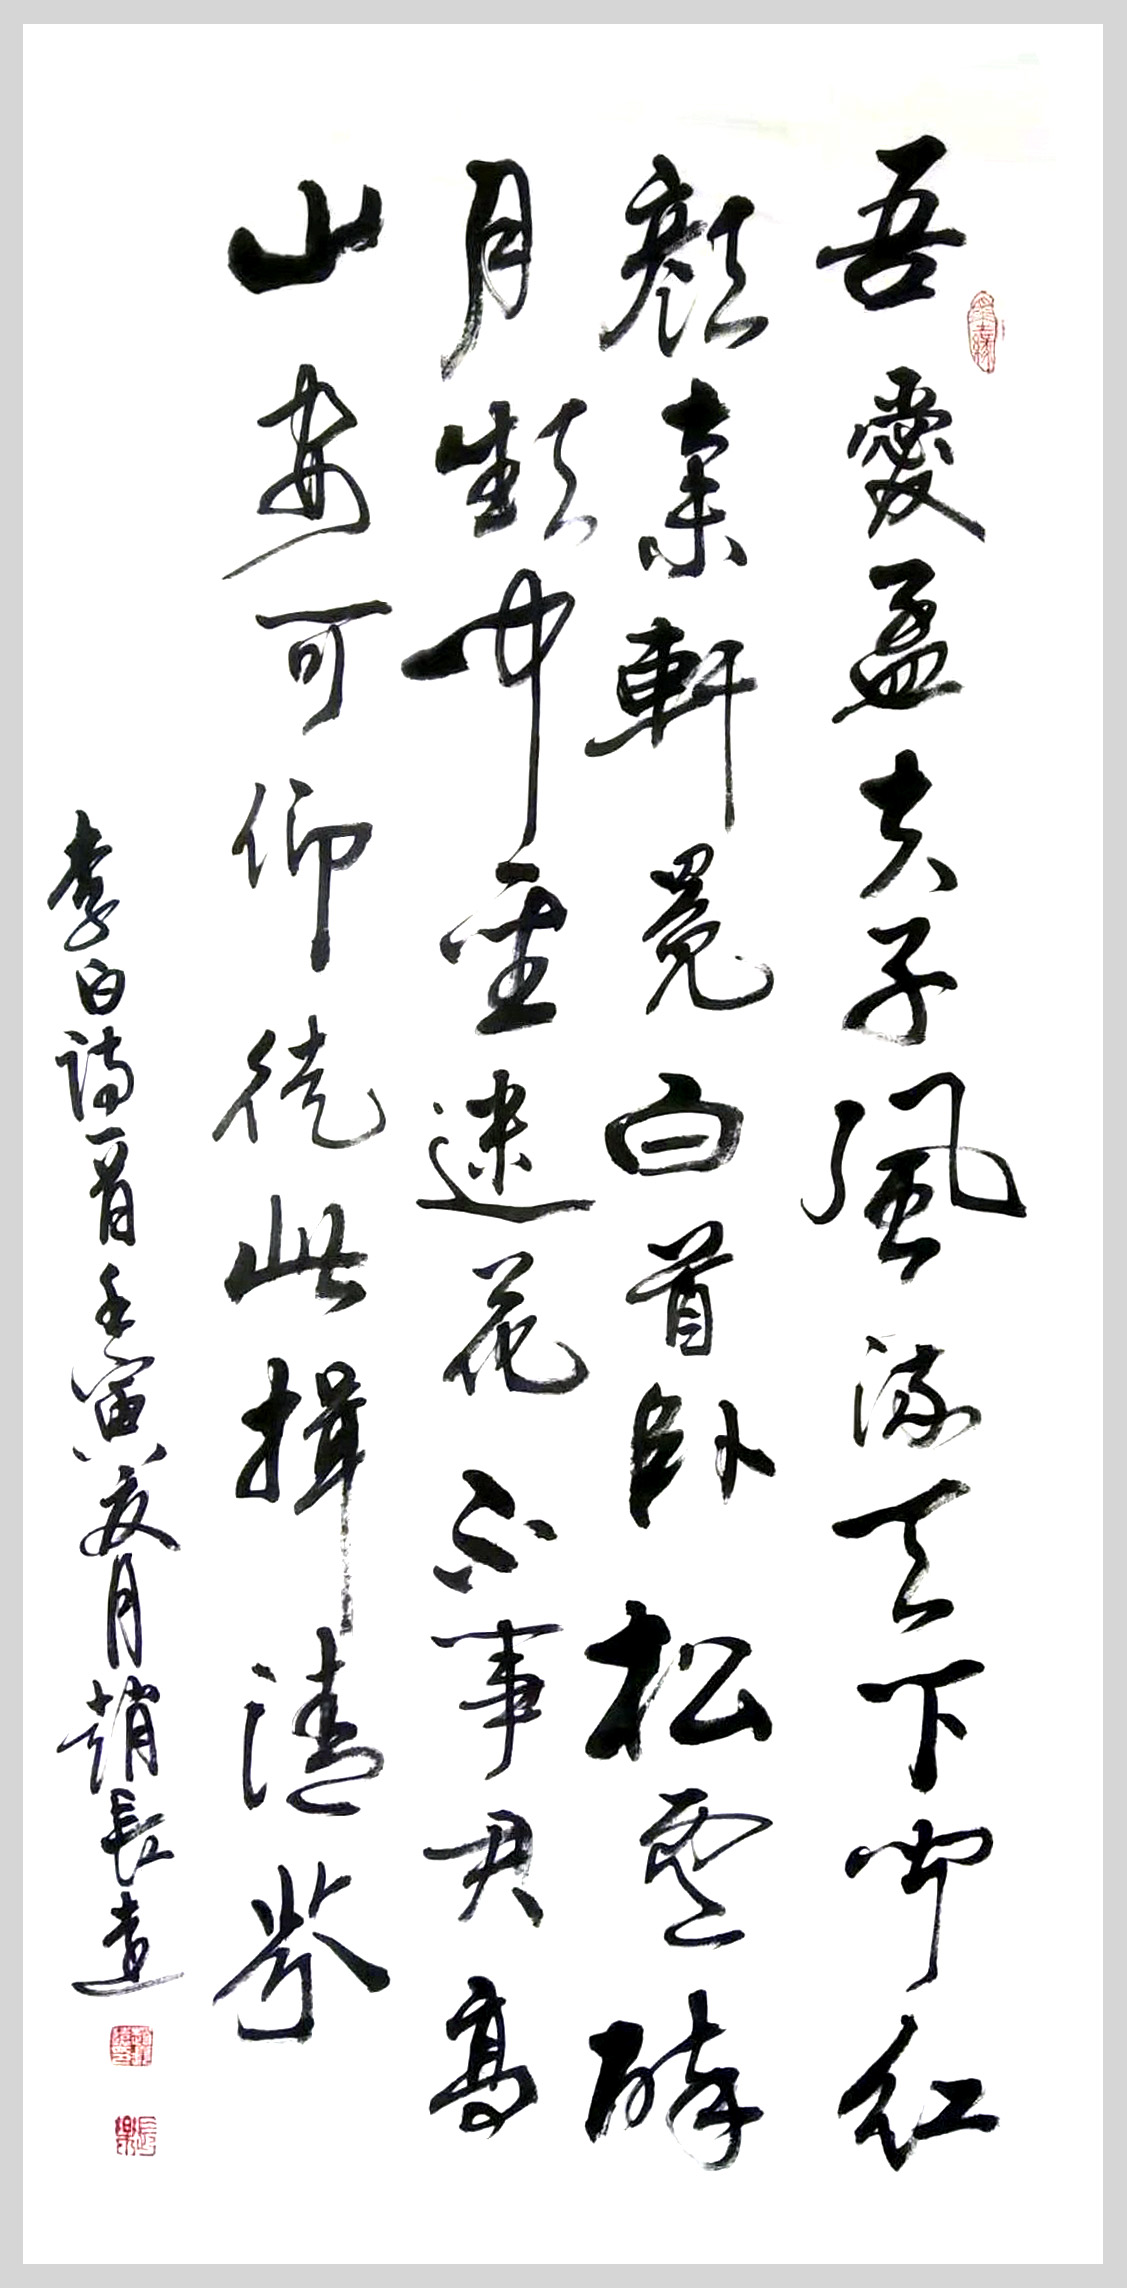 吾愛孟夫子風流天下聞紅
顏棄軒冕白首臥松雲醉
月頻中聖迷花不事君高
山安可仰徒此揖清芬
李白詩一首壬寅夏月趙長遠